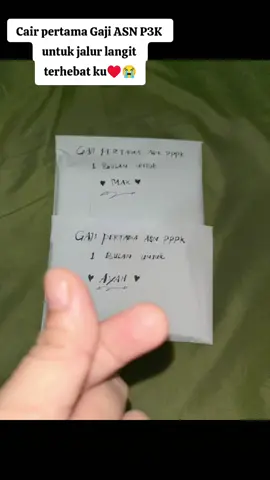 Cair pertama Gaji ASN P3K
untuk jalur langit
terhebat ku❤️😭
GAJI PERTAMA ASN PPPK
1 BULAN UNTUK
♥ MAK ♥
GAJI PERTAMA ASN PPPK
1 BULAN UNTUK
♥ AYAH ♥